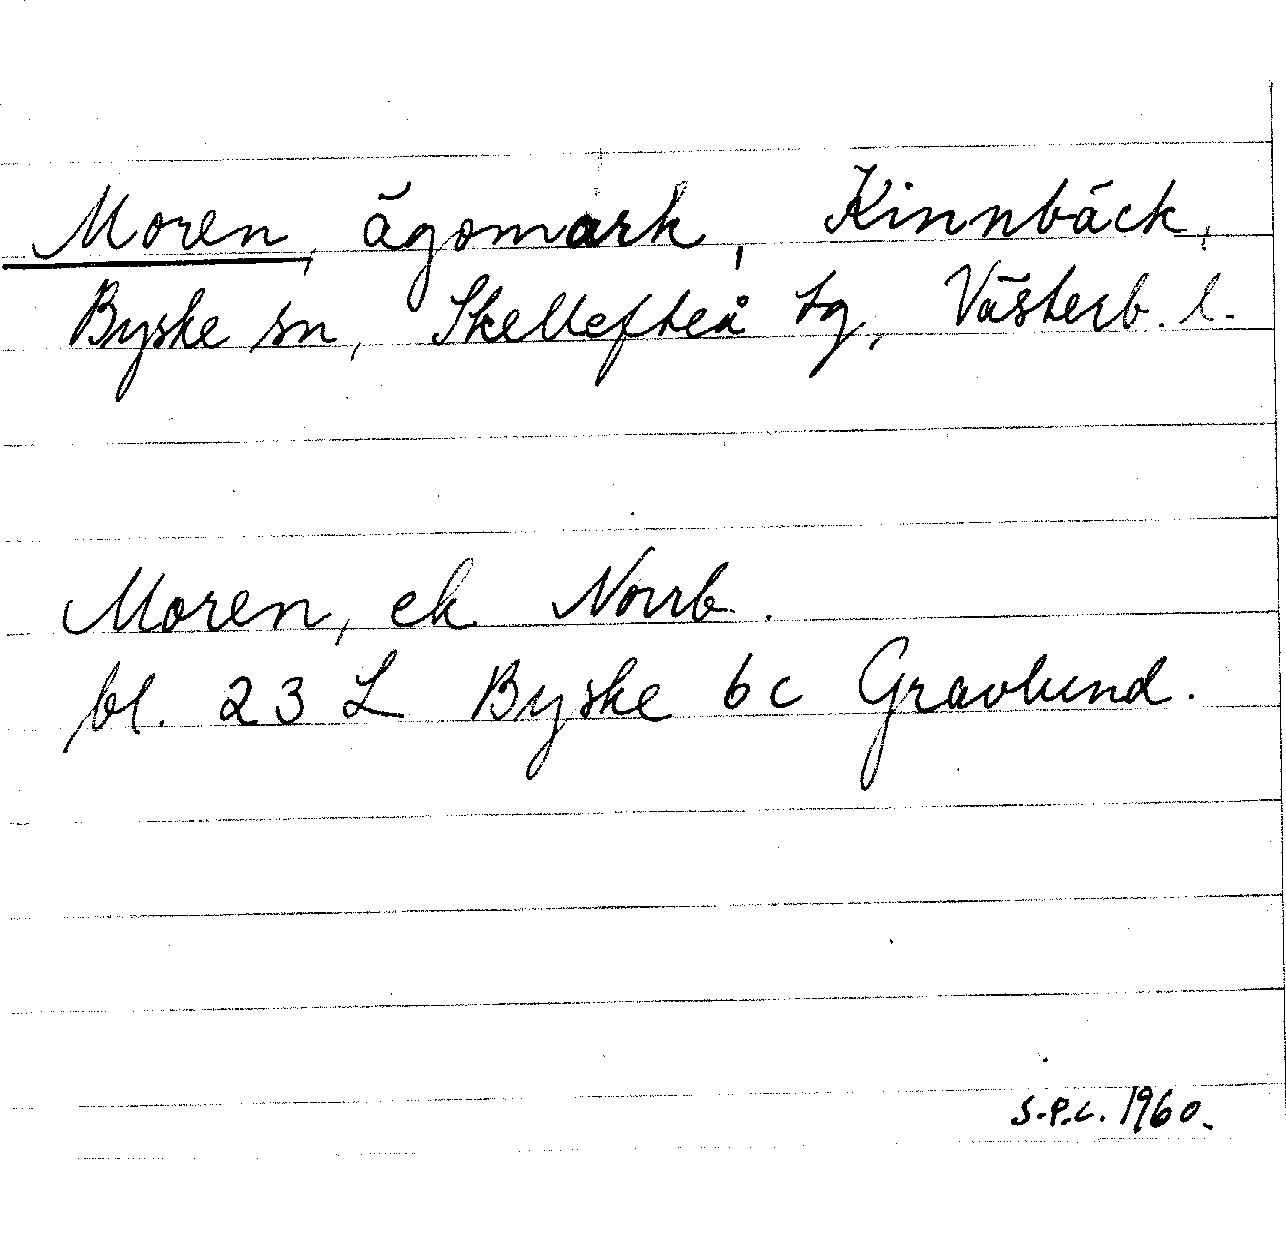 Moren, ägomark, Kinnbäck,
Byske sn, Skellefteå tg, Västerb. l.
Moren, ek Norrb.
bl. 23 L Byske 6c Gravlund.
S.P.C. 1960.